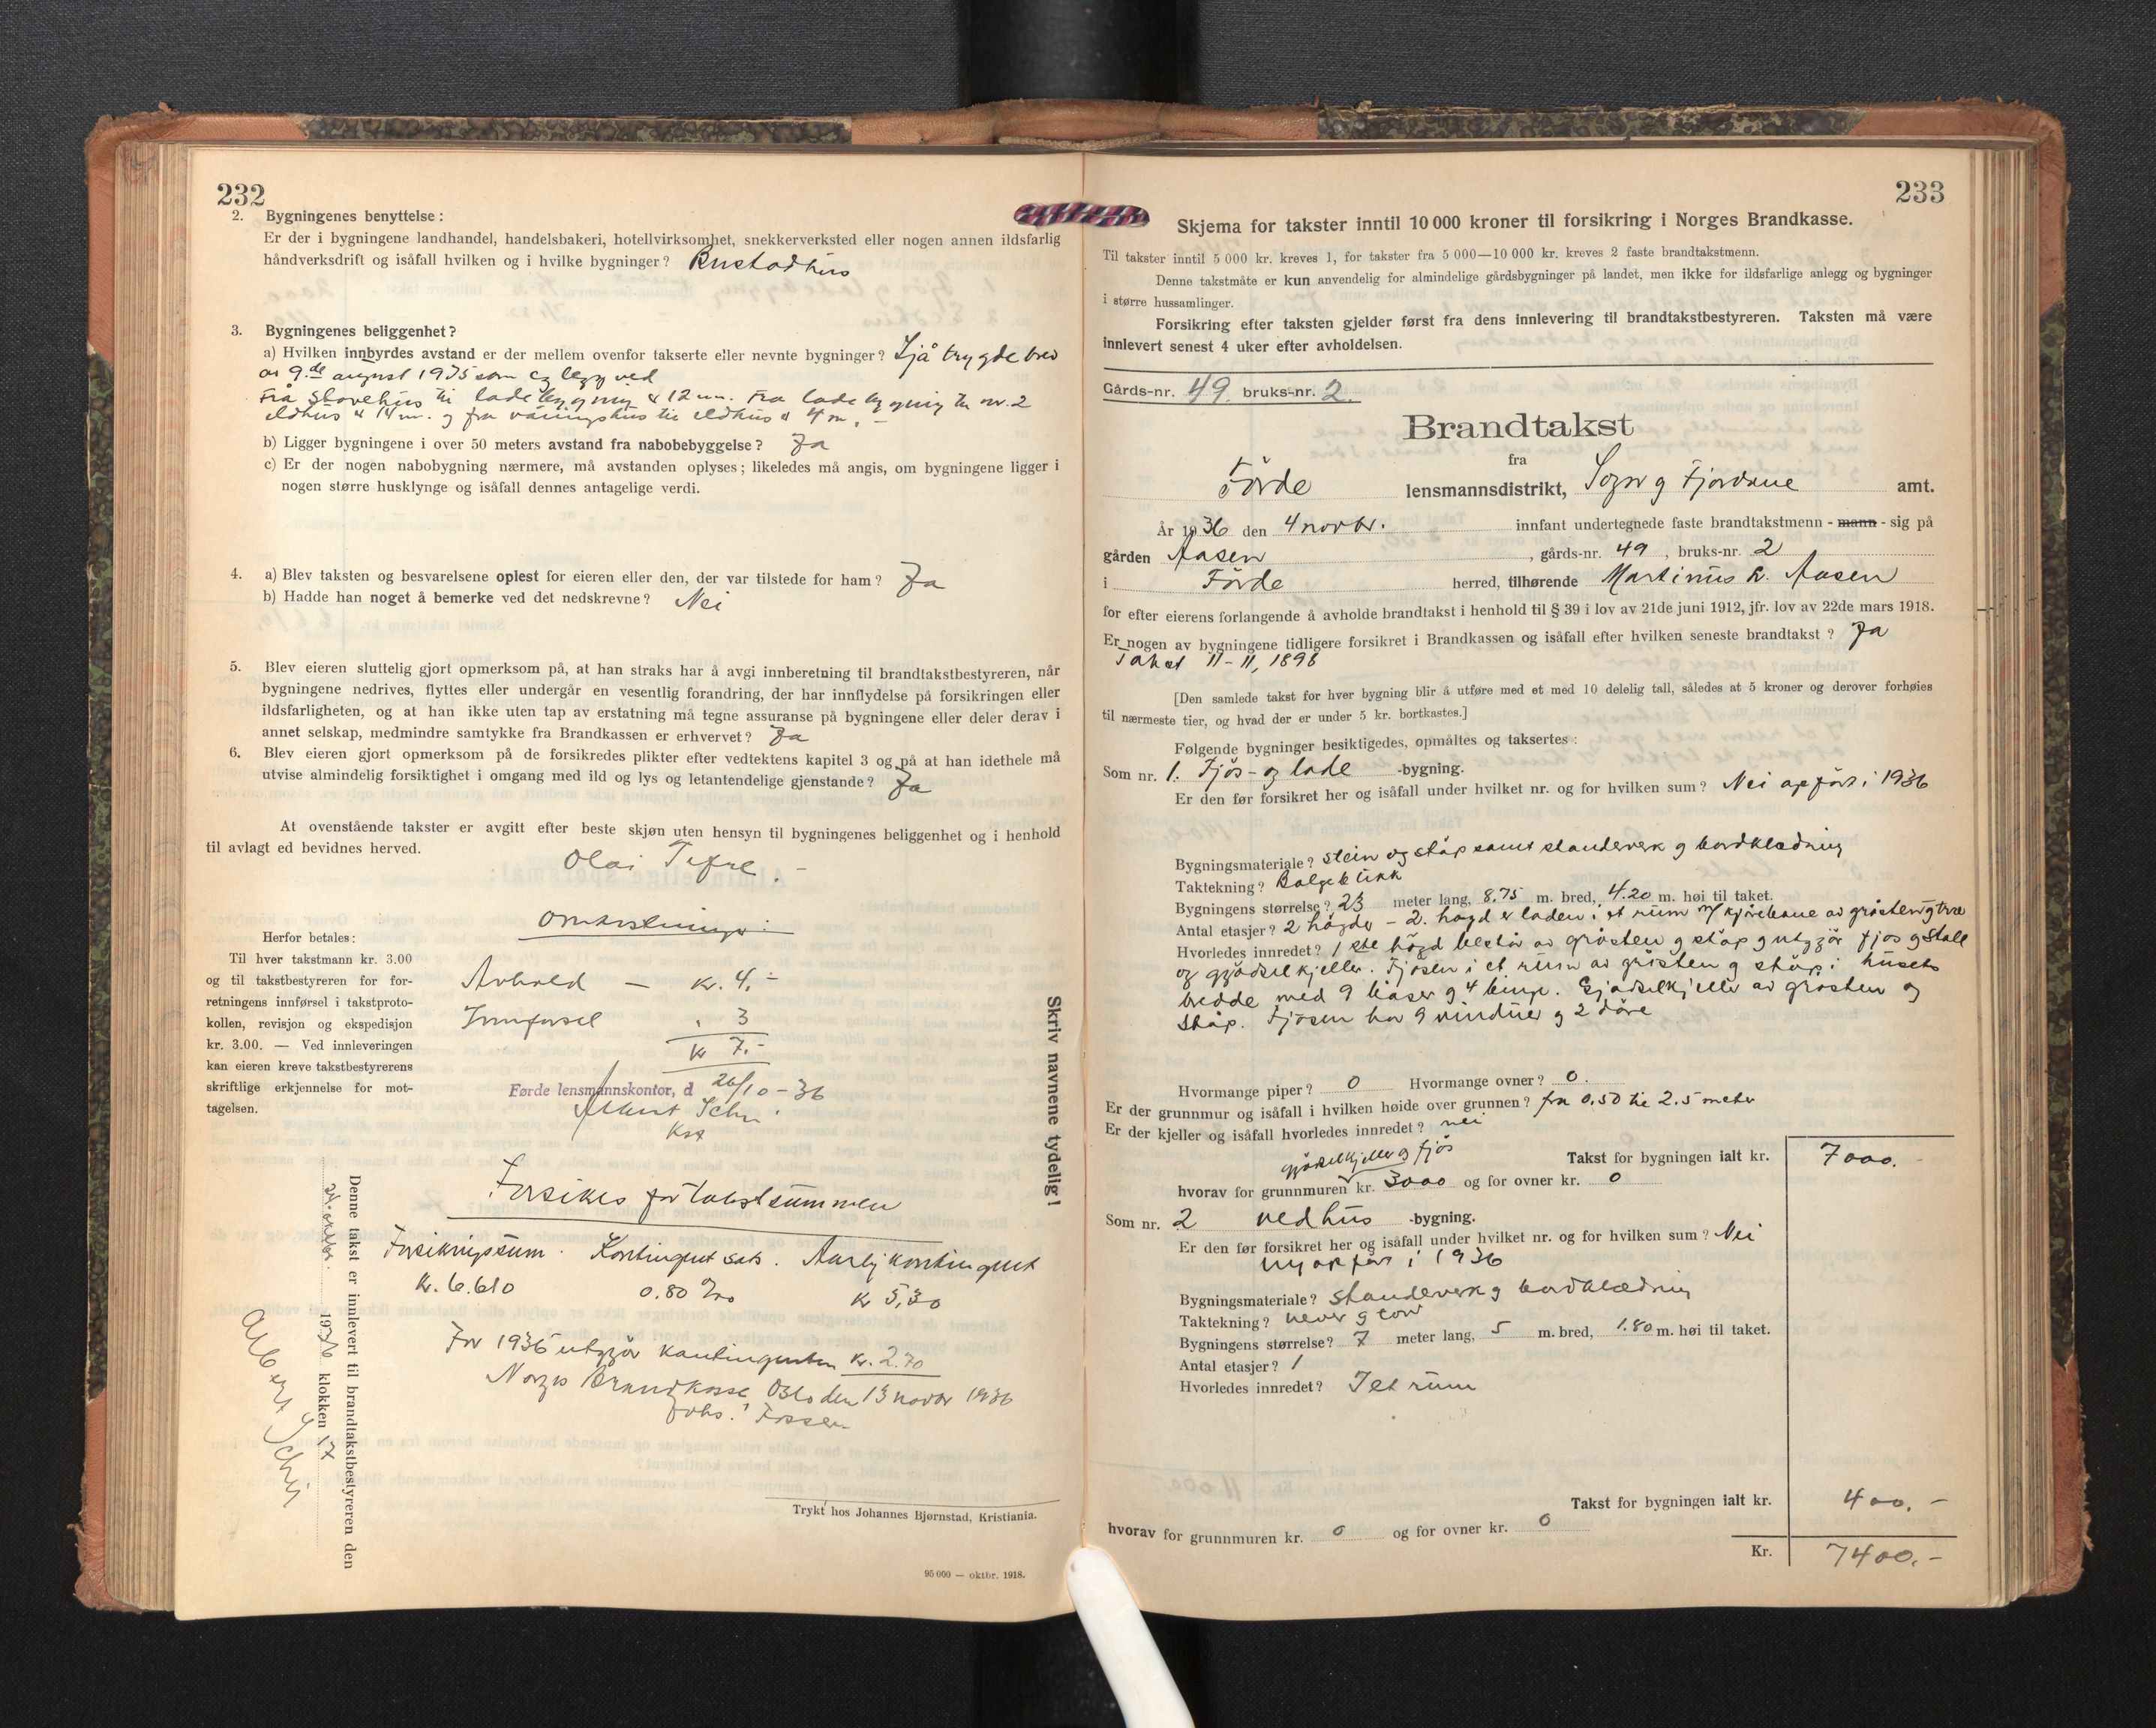 232
2. Bygningenes benyttelse:
Er der i bygningene landhandel, handelsbakeri, hotellvirksomhet, snekkerverksted eller nogen annen ildsfarlig
håndverksdrift og isåfall hvilken og i hvilke bygninger? Bustadhus
3. Bygningenes beliggenhet?
a) Hvilken innbyrdes avstand er der mellem ovenfor takserte eller nevnte bygninger? Sjå trygdebrev
av 9.de august 1935 som eg legg ved
Frå stovehus til ladebygning er 12 m. Fra ladebygning til nr. 2
eldhus er 14 m. og fra våningshus til eldhus er 4 m. -
b) Ligger bygningene i over 50 meters avstand fra nabobebyggelse? Ja
c) Er der nogen nabobygning nærmere, må avstanden oplyses; likeledes må angis, om bygningene ligger i
nogen større husklynge og isåfall dennes antagelige verdi.
4. a) Blev taksten og besvarelsene oplest for eieren eller den, der var tilstede for ham? Ja
b) Hadde han noget å bemerke ved det nedskrevne? Nei
5. Blev eieren sluttelig gjort opmerksom på, at han straks har å avgi innberetning til brandtakstbestyreren, når
bygningene nedrives, flyttes eller undergår en vesentlig forandring, der har innflydelse på forsikringen eller
ildsfarligheten, og at han ikke uten tap av erstatning må tegne assuranse på bygningene eller deler derav i
annet selskap, medmindre samtykke fra Brandkassen er erhvervet? Ja
6. Blev eieren gjort opmerksom på de forsikredes plikter efter vedtektens kapitel 3 og på at han idethele må
utvise almindelig forsiktighet i omgang med ild og lys og letantendelige gjenstande? Ja
At ovenstående takster er avgitt efter beste skjøn uten hensyn til bygningenes beliggenhet og i henhold
til avlagt ed bevidnes herved.
Olai
Omkostninger:
Herfor betales:
Til hver takstmann kr. 3.00
og til takstbestyreren for for-
retningens innførsel i takstproto-
kollen, revisjon og ekspedisjon
kr. 3.00. — Ved innleveringen
kan eieren kreve takstbestyrerens
skriftlige erkjennelse for mot-
tagelsen.
Avhold — kr. 4.-
Innførsel " 3
kr 7.-
Førde lensmannskontor, d 26/10-36
Albert
Skriv navnene tydelig!
Forsikres for takstsummen
Forsikringssum. Kontingent sats. Aarlig kontingent
Kr. 6.610 0.80 ‰ kr 5,30
For 1936 utgjør kontingenten kr. 2.70
Norges Brandkasse Oslo den 13 novbr 1936
Johs. Fossen
Denne takst er innlevert til brandtakstbestyreren den
24. oktbr. 1936 klokken 17
Albert
Trykt hos Johannes Bjørnstad, Kristiania.
95 000 — oktbr. 1918.
233
Skjema for takster inntil 10 000 kroner til forsikring i Norges Brandkasse.
Til takster inntil 5 000 kr. kreves 1, for takster fra 5 000—10 000 kr. kreves 2 faste brandtakstmenn.
Denne takstmåte er kun anvendelig for almindelige gårdsbygninger på landet, men ikke for ildsfarlige anlegg og bygninger
i større hussamlinger.
Forsikring efter taksten gjelder først fra dens innlevering til brandtakstbestyreren. Taksten må være
innlevert senest 4 uker efter avholdelsen.
Gårds-nr. 49. bruks-nr. 2.
Brandtakst
fra
Førde lensmannsdistrikt, Sogn og Fjordane amt.
År 1936 den 4 novbr. innfant undertegnede faste brandtakstmenn - mann - sig på
gården Aasen, gårds-nr. 49, bruks-nr. 2
i Førde herred, tilhørende Martinus L. Aasen
for efter eierens forlangende å avholde brandtakst i henhold til § 39 i lov av 21de juni 1912, jfr. lov av 22de mars 1918.
Er nogen av bygningene tidligere forsikret i Brandkassen og isåfall efter hvilken seneste brandtakst? Ja
Takst 11-11, 1898
[Den samlede takst for hver bygning blir å utføre med et med 10 delelig tall, således at 5 kroner og derover forhøies
til nærmeste tier, og hvad der er under 5 kr. bortkastes.]
Følgende bygninger besiktigedes, opmåltes og taksertes:
Som nr. 1. Fjøs- og lade -bygning.
Er den før forsikret her og isåfall under hvilket nr. og for hvilken sum? Nei opført i 1936
Bygningsmateriale? stein og støp samt standerverk og bordklædning
Taktekning? Bølgeblikk
Bygningens størrelse? 23 meter lang, 8.75 m. bred, 4.20 m. høi til taket.
Antal etasjer? 2 høgder - 2. høgd er laden i et rum m/ kjørebane av gråsten og tre
Hvorledes innredet? 1 ste høgd består av gråsten og støp og utgjør fjøs og stall
og gjødselkjeller. Fjøsen i et rum av gråsten og støp i husets
bredde med 9 båser og 4 binge. Gjødselkjeller av gråsten og
støp. Fjøsen har 9 vinduer og 2 døre
Hvormange piper? 0 Hvormange ovner? 0.
Er der grunnmur og isåfall i hvilken høide over grunnen? fra 0.50 til 2.5 meter
Er der kjeller og isåfall hvorledes innredet? nei
Takst for bygningen ialt kr. 7000.
gjødselkjeller og fjøs
hvorav for grunnmuren kr. 3000 og for ovner kr. 0
Som nr. 2 vedhus -bygning.
Er den før forsikret her og isåfall under hvilket nr. og for hvilken sum? Nei
ny opført i 1936
Bygningsmateriale? standerverk og bordklædning
Taktekning? never og torv
Bygningens størrelse? 7 meter lang, 5 m. bred, 1.80 m. høi til taket.
Antal etasjer? 1
Hvorledes innredet? I et rum
Takst for bygningen ialt kr. 400.-
hvorav for grunnmuren kr. 0 og for ovner kr. 0
Kr. 7400.-